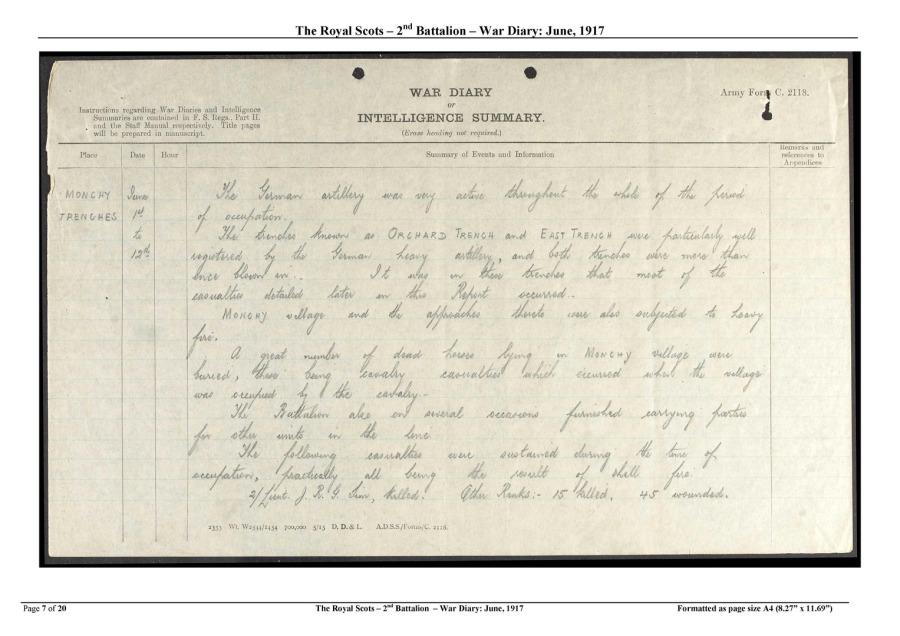 The Royal Scots – 2nd Battalion – War Diary: June, 1917
WAR DIARY
or
INTELLIGENCE SUMMARY.
(Erase heading not required.)
Army Form C. 2118.
Instructions regarding War Diaries and Intelligence
Summaries are contained in F. S. Regs., Part II.
and the Staff Manual respectively. Title pages
will be prepared in manuscript.
Place Date Hour Summary of Events and Information Remarks and
references to
Appendices
MONCHY
TRENCHES
June
1st
to
12th
The German artillery was very active throughout the whole of the period
of occupation.
The trenches known as ORCHARD TRENCH and EAST TRENCH were particularly well
registered by the German heavy artillery, and both trenches were more than
once blown in. It was in these trenches that most of the
casualties detailed later in this Report occurred.
MONCHY village and the approaches thereto were also subjected to heavy
fire.
A great number of dead horses lying in MONCHY village were
buried, these being cavalry casualties which occurred when the village
was occupied by the cavalry.
The Battalion also on several occasions furnished carrying parties
for other units in the line.
The following casualties were sustained during the time of
occupation, practically all being the result of shell fire.
2/Lieut. J. R. G. Sim, killed. Other Ranks:- 15 killed, 45 wounded.
2353 Wt. W2544/1454 700,000 5/15 D. D. & L. A.D.S.S./Forms/C. 2118.
Page 7 of 20 The Royal Scots – 2nd Battalion – War Diary: June, 1917 Formatted as page size A4 (8.27" x 11.69")